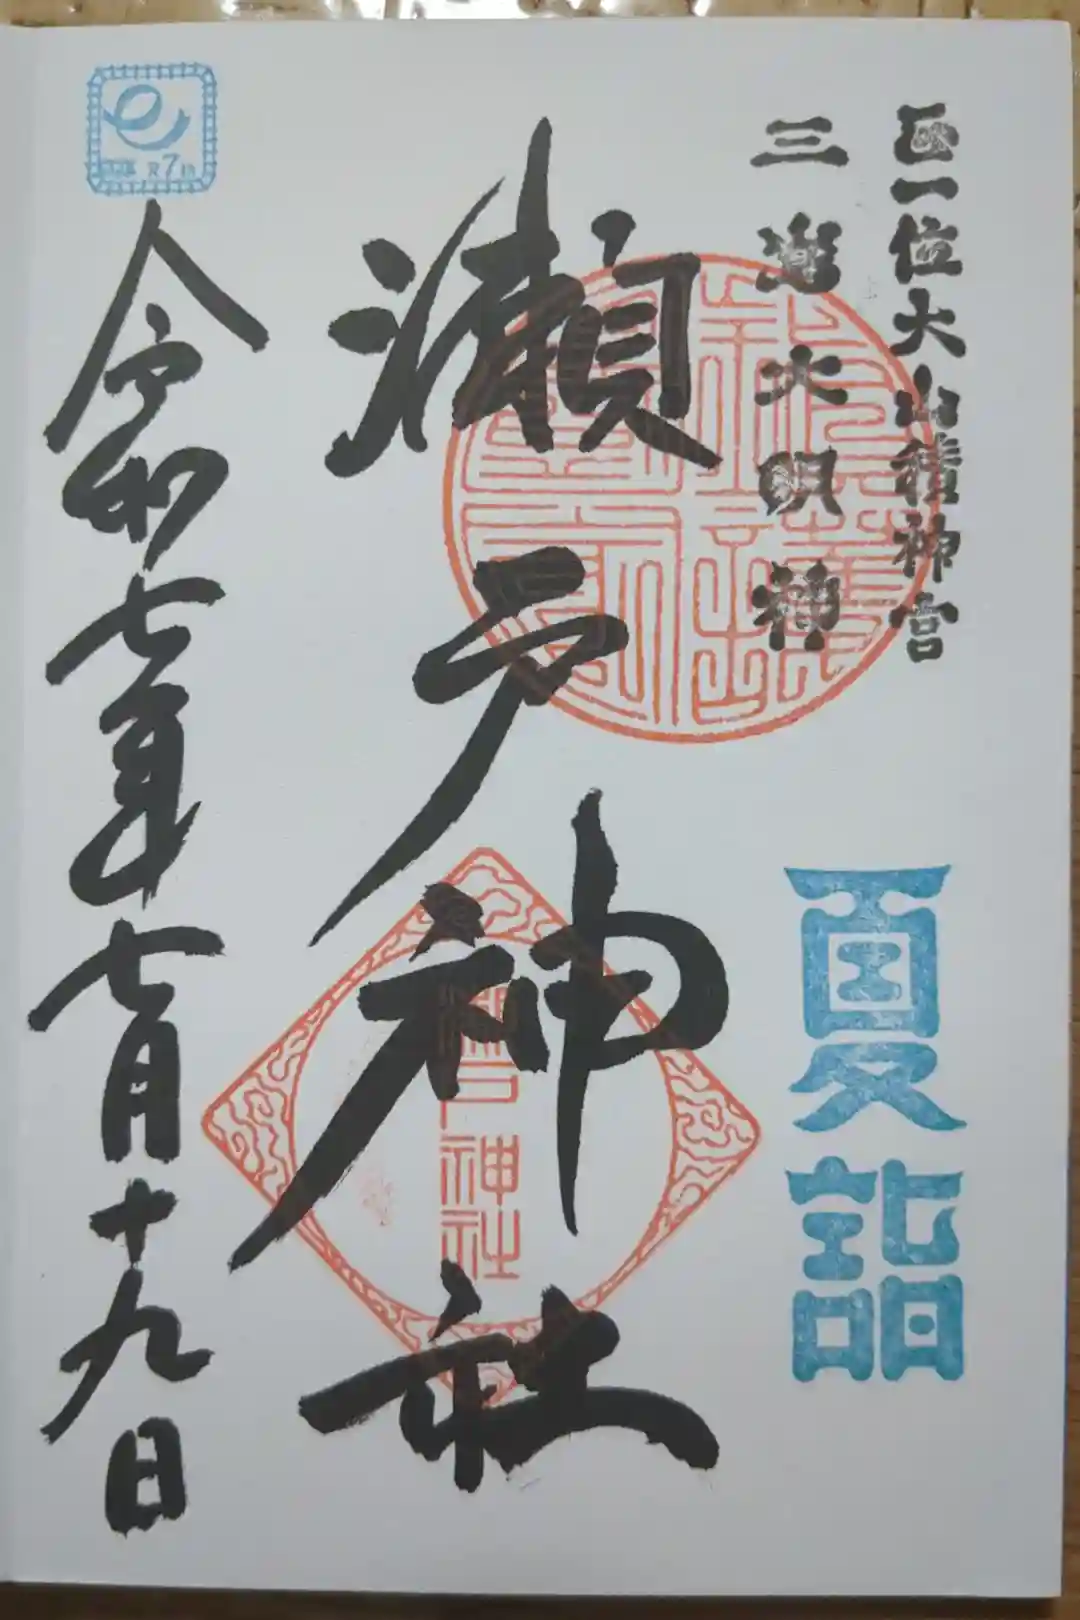 正一位大山積神宮
三嶌大明神
夏詣
瀬戸神社
瀬戸神社
令和七年七月十九日
7